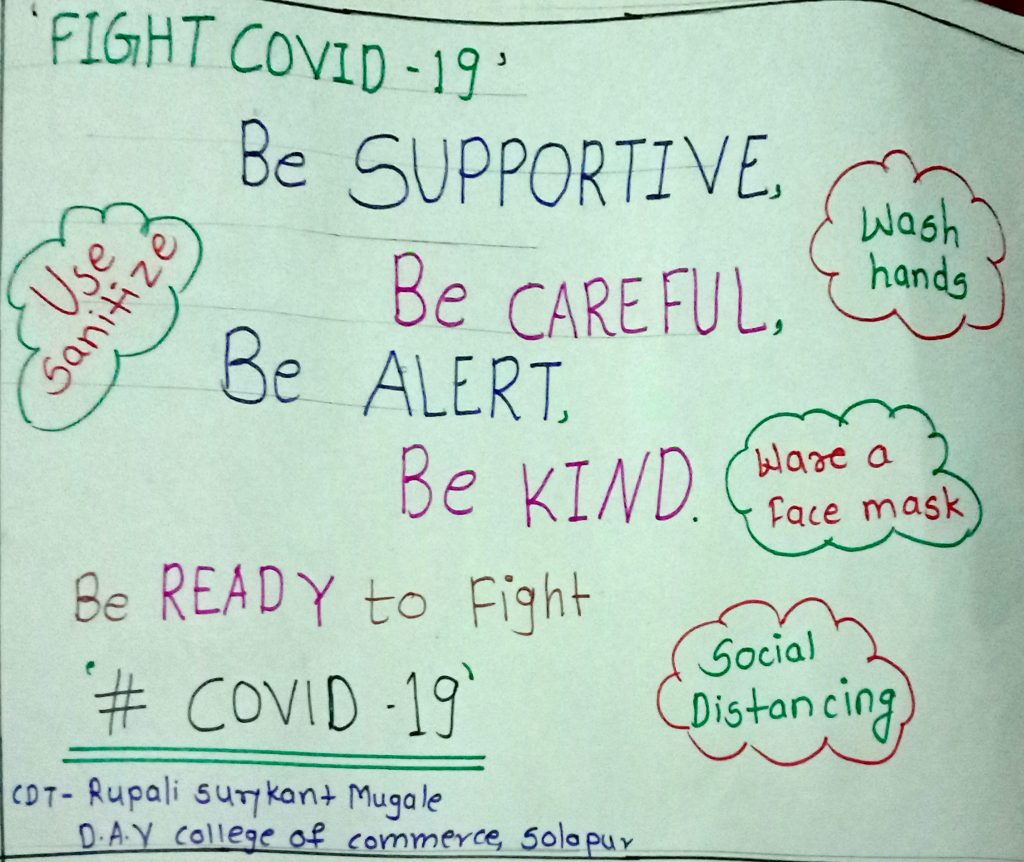 'FIGHT COVID - 19'
Be SUPPORTIVE,
Wash
hands
Use
Sanitize
Be CAREFUL,
Be ALERT,
Be KIND.
Ware a
Face mask
Be READY to Fight
Social
Distancing
'# COVID - 19'
CDT- Rupali surykant Mugale
D.A.V college of commerce, Solapur